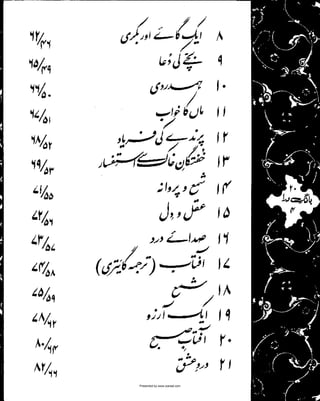 ۸ ایک گائے اور بکری ۶۲/۴۶
۹ بچے کی دعا ۶۵/۴۹
۱۰ ہمدردی ۶۶/۵۰
۱۱ ماں کا خواب ۶۷/۵۱
۱۲ پرندے کی فریاد ۶۸/۵۲
۱۳ خفتگانِ خاک سے استفسار ۶۹/۵۳
۱۴ شمع و پروانہ ۷۱/۵۵
۱۵ عقل و دل ۷۲/۵۶
۱۶ صدائے درد ۷۳/۵۷
۱۷ آفتاب (ترجمہ گایتری) ۷۴/۵۸
۱۸ شمع ۷۵/۵۹
۱۹ ایک آرزو ۷۸/۶۲
۲۰ آفتابِ صبح ۸۰/۶۴
۲۱ دردِ عشق ۸۲/۶۶
۲۰
بانگِ درا
۴
Presented by www.ziaraat.com